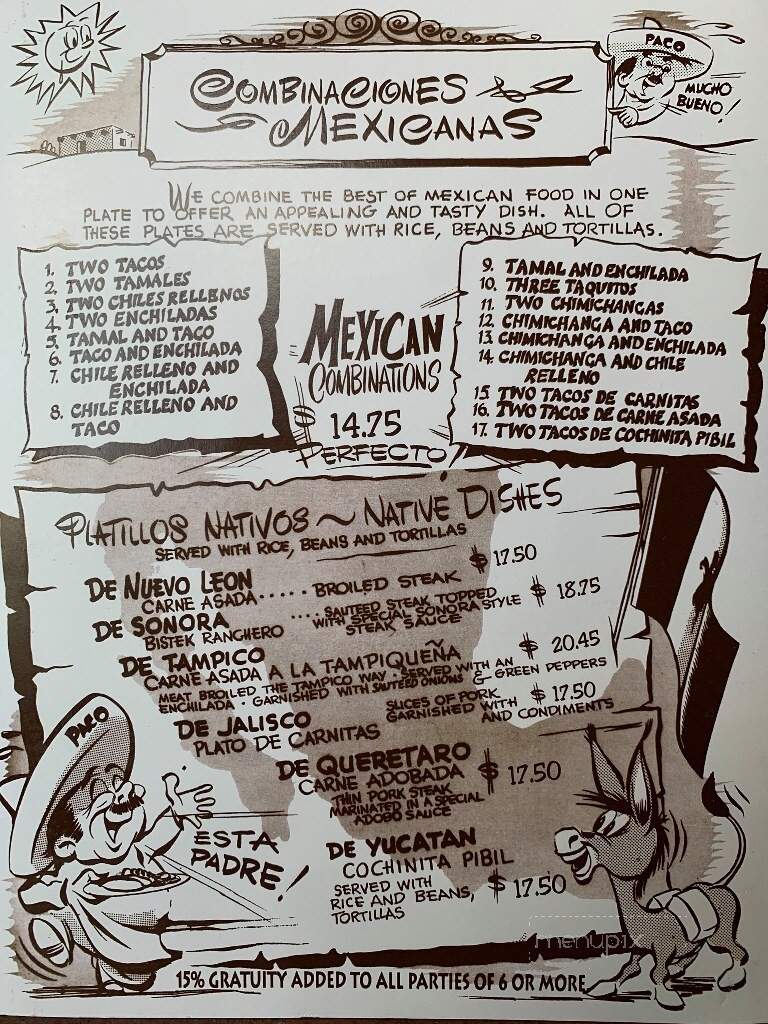 PACO
MUCHO
BUENO!
COMBINACIONES
MEXICANAS
WE COMBINE THE BEST OF MEXICAN FOOD IN ONE
PLATE TO OFFER AN APPEALING AND TASTY DISH. ALL OF
THESE PLATES ARE SERVED WITH RICE, BEANS AND TORTILLAS.
1. TWO TACOS
2. TWO TAMALES
3. TWO CHILES RELLENOS
4. TWO ENCHILADAS
5. TAMAL AND TACO
6. TACO AND ENCHILADA
7. CHILE RELLENO AND
ENCHILADA
8. CHILE RELLENO AND
TACO
MEXICAN
COMBINATIONS
$ 14.75
PERFECTO
9. TAMAL AND ENCHILADA
10. THREE TAQUITOS
11. TWO CHIMICHANGAS
12. CHIMICHANGA AND TACO
13. CHIMICHANGA AND ENCHILADA
14. CHIMICHANGA AND CHILE
RELLENO
15. TWO TACOS DE CARNITAS
16. TWO TACOS DE CARNE ASADA
17. TWO TACOS DE COCHINITA PIBIL
PLATILLOS NATIVOS ~ NATIVE DISHES
SERVED WITH RICE, BEANS AND TORTILLAS
DE NUEVO LEON
CARNE ASADA..... BROILED STEAK $ 17.50
DE SONORA
BISTEK RANCHERO .... SAUTEED STEAK TOPPED
WITH SPECIAL SONORA STYLE
STEAK SAUCE $ 18.75
DE TAMPICO
CARNE ASADA A LA TAMPIQUEÑA $ 20.45
MEAT BROILED THE TAMPICO WAY · SERVED WITH AN
ENCHILADA · GARNISHED WITH SAUTEED ONIONS & GREEN PEPPERS
DE JALISCO
PLATO DE CARNITAS
SLICES OF PORK
GARNISHED WITH
AND CONDIMENTS $ 17.50
DE QUERETARO
CARNE ADOBADA
THIN PORK STEAK
MARINATED IN A SPECIAL
ADOBO SAUCE $ 17.50
DE YUCATAN
COCHINITA PIBIL
SERVED WITH
RICE AND BEANS,
TORTILLAS $ 17.50
PACO
ESTA
PADRE!
menupix
15% GRATUITY ADDED TO ALL PARTIES OF 6 OR MORE